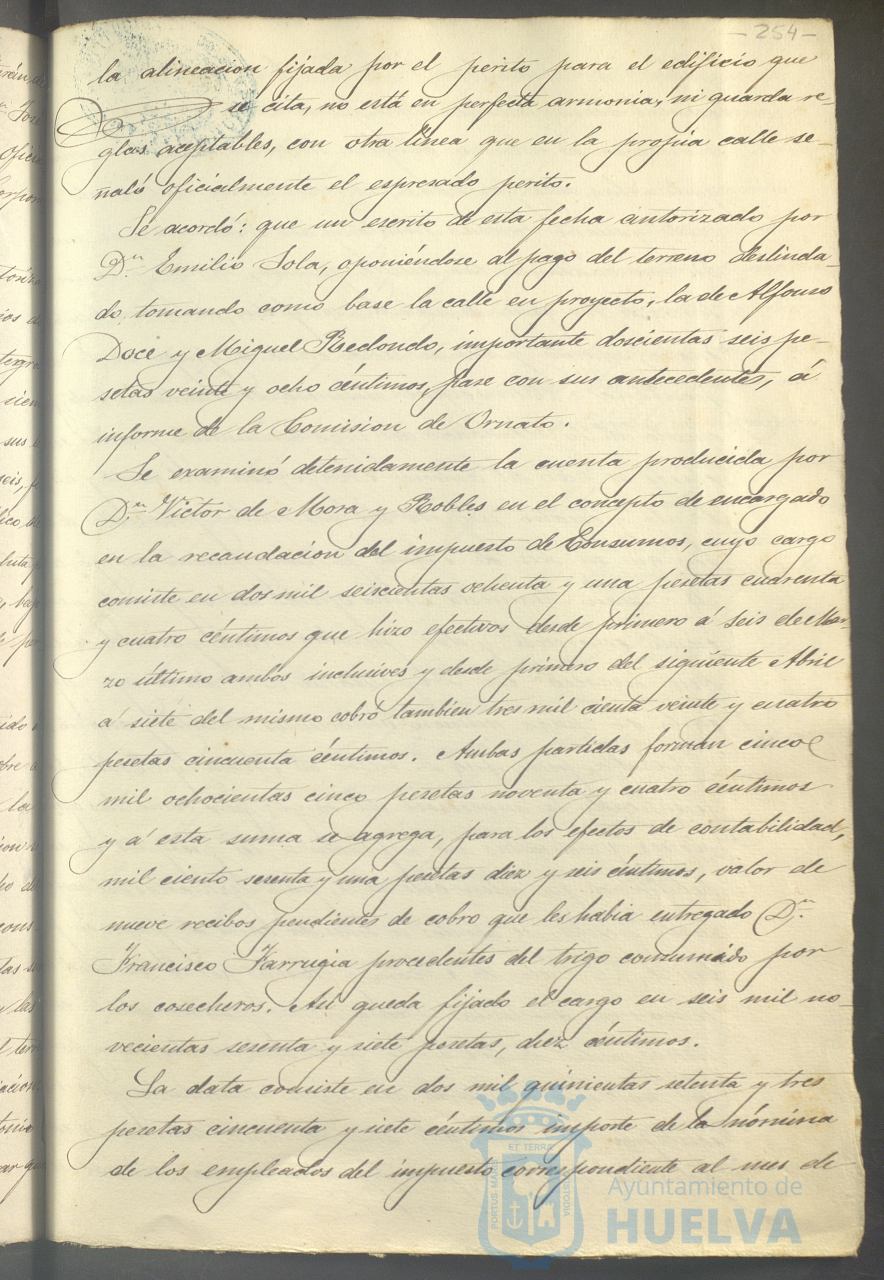 - 254 -
la alineacion fijada por el perito para el edificio que
se cita, no está en perfecta armonia, ni guarda re-
glas aceptables, con otra línea que en la propia calle se-
ñaló oficialmente el espresado perito.
Se acordó: que un escrito de esta fecha autorizado por
D.n Emilio Sola, oponiéndose al pago del terreno deslinda-
do, tomando como base la calle en proyecto, la de Alfonso
Doce y Miguel Redondo, importante doscientas seis pe-
setas veinte y ocho céntimos, pase con sus antecedentes, á
informe de la Comision de Ornato.
Se examinó detenidamente la cuenta producida por
D.n Victor de Mora y Robles en el concepto de encargado
en la recaudacion del impuesto de Consumos, cuyo cargo
consiste en dos mil seiscientas ochenta y una pesetas cuarenta
y cuatro céntimos que hizo efectivos desde primero á seis de Mar-
zo último ambos inclusives y desde primero del siguiente Abril
á siete del mismo cobró tambien tres mil cienta veinte y cuatro
pesetas cincuenta céntimos. Ambas partidas forman cinco
mil ochocientas cinco pesetas noventa y cuatro céntimos
y á esta suma se agrega, para los efectos de contabilidad,
mil ciento sesenta y una pesetas diez y seis céntimos, valor de
nueve recibos pendientes de cobro que les habia entregado D.n
Francisco Farrugia procedentes del trigo consumido por
los cosecheros. Asi queda fijado el cargo en seis mil no-
vecientas sesenta y siete pesetas, diez céntimos.
La data consiste en dos mil quinientas setenta y tres
pesetas cincuenta y siete céntimos importe de la nómina
de los empleados del impuesto correspondiente al mes de
PORTUS MARIS
ET TERRAE
CUSTODIA
Ayuntamiento de
HUELVA